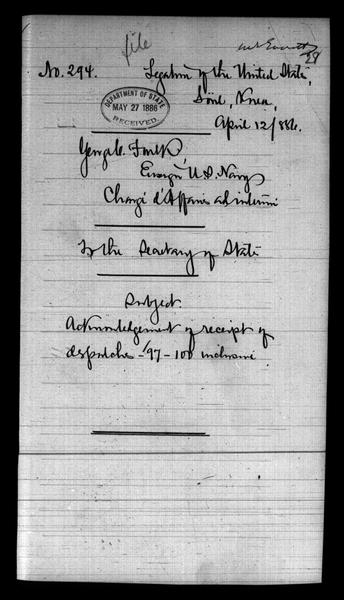 file
No. 294.
Legation of the United States,
Söul, Korea,
April 12/886.
DEPARTMENT OF STATE
MAY 27 1886
RECEIVED
George C. Foulk,
Ensign U.S. Navy
Chargé d'Affaires ad interim
To the Secretary of State
Subject.
Acknowledgement of receipt of
despatches - 97 - 100 inclusive